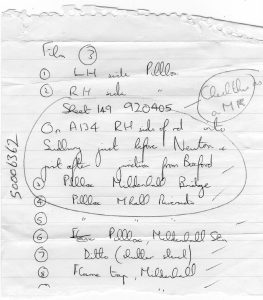 Film ③
① LH side Pillbox
② RH side "
Sheet 149 920405
Check this is a MR
On A134 RH side of rd into
Sudbury just before Newton
just after junction from Boxford
③ Pillbox Mildenhall Bridge
④ Pillbox M'hall Riverside
⑤ "
⑥ Pillbox, Mildenhall Stn
⑦ Ditto (
⑧ Flame trap, Mildenhall
50006362